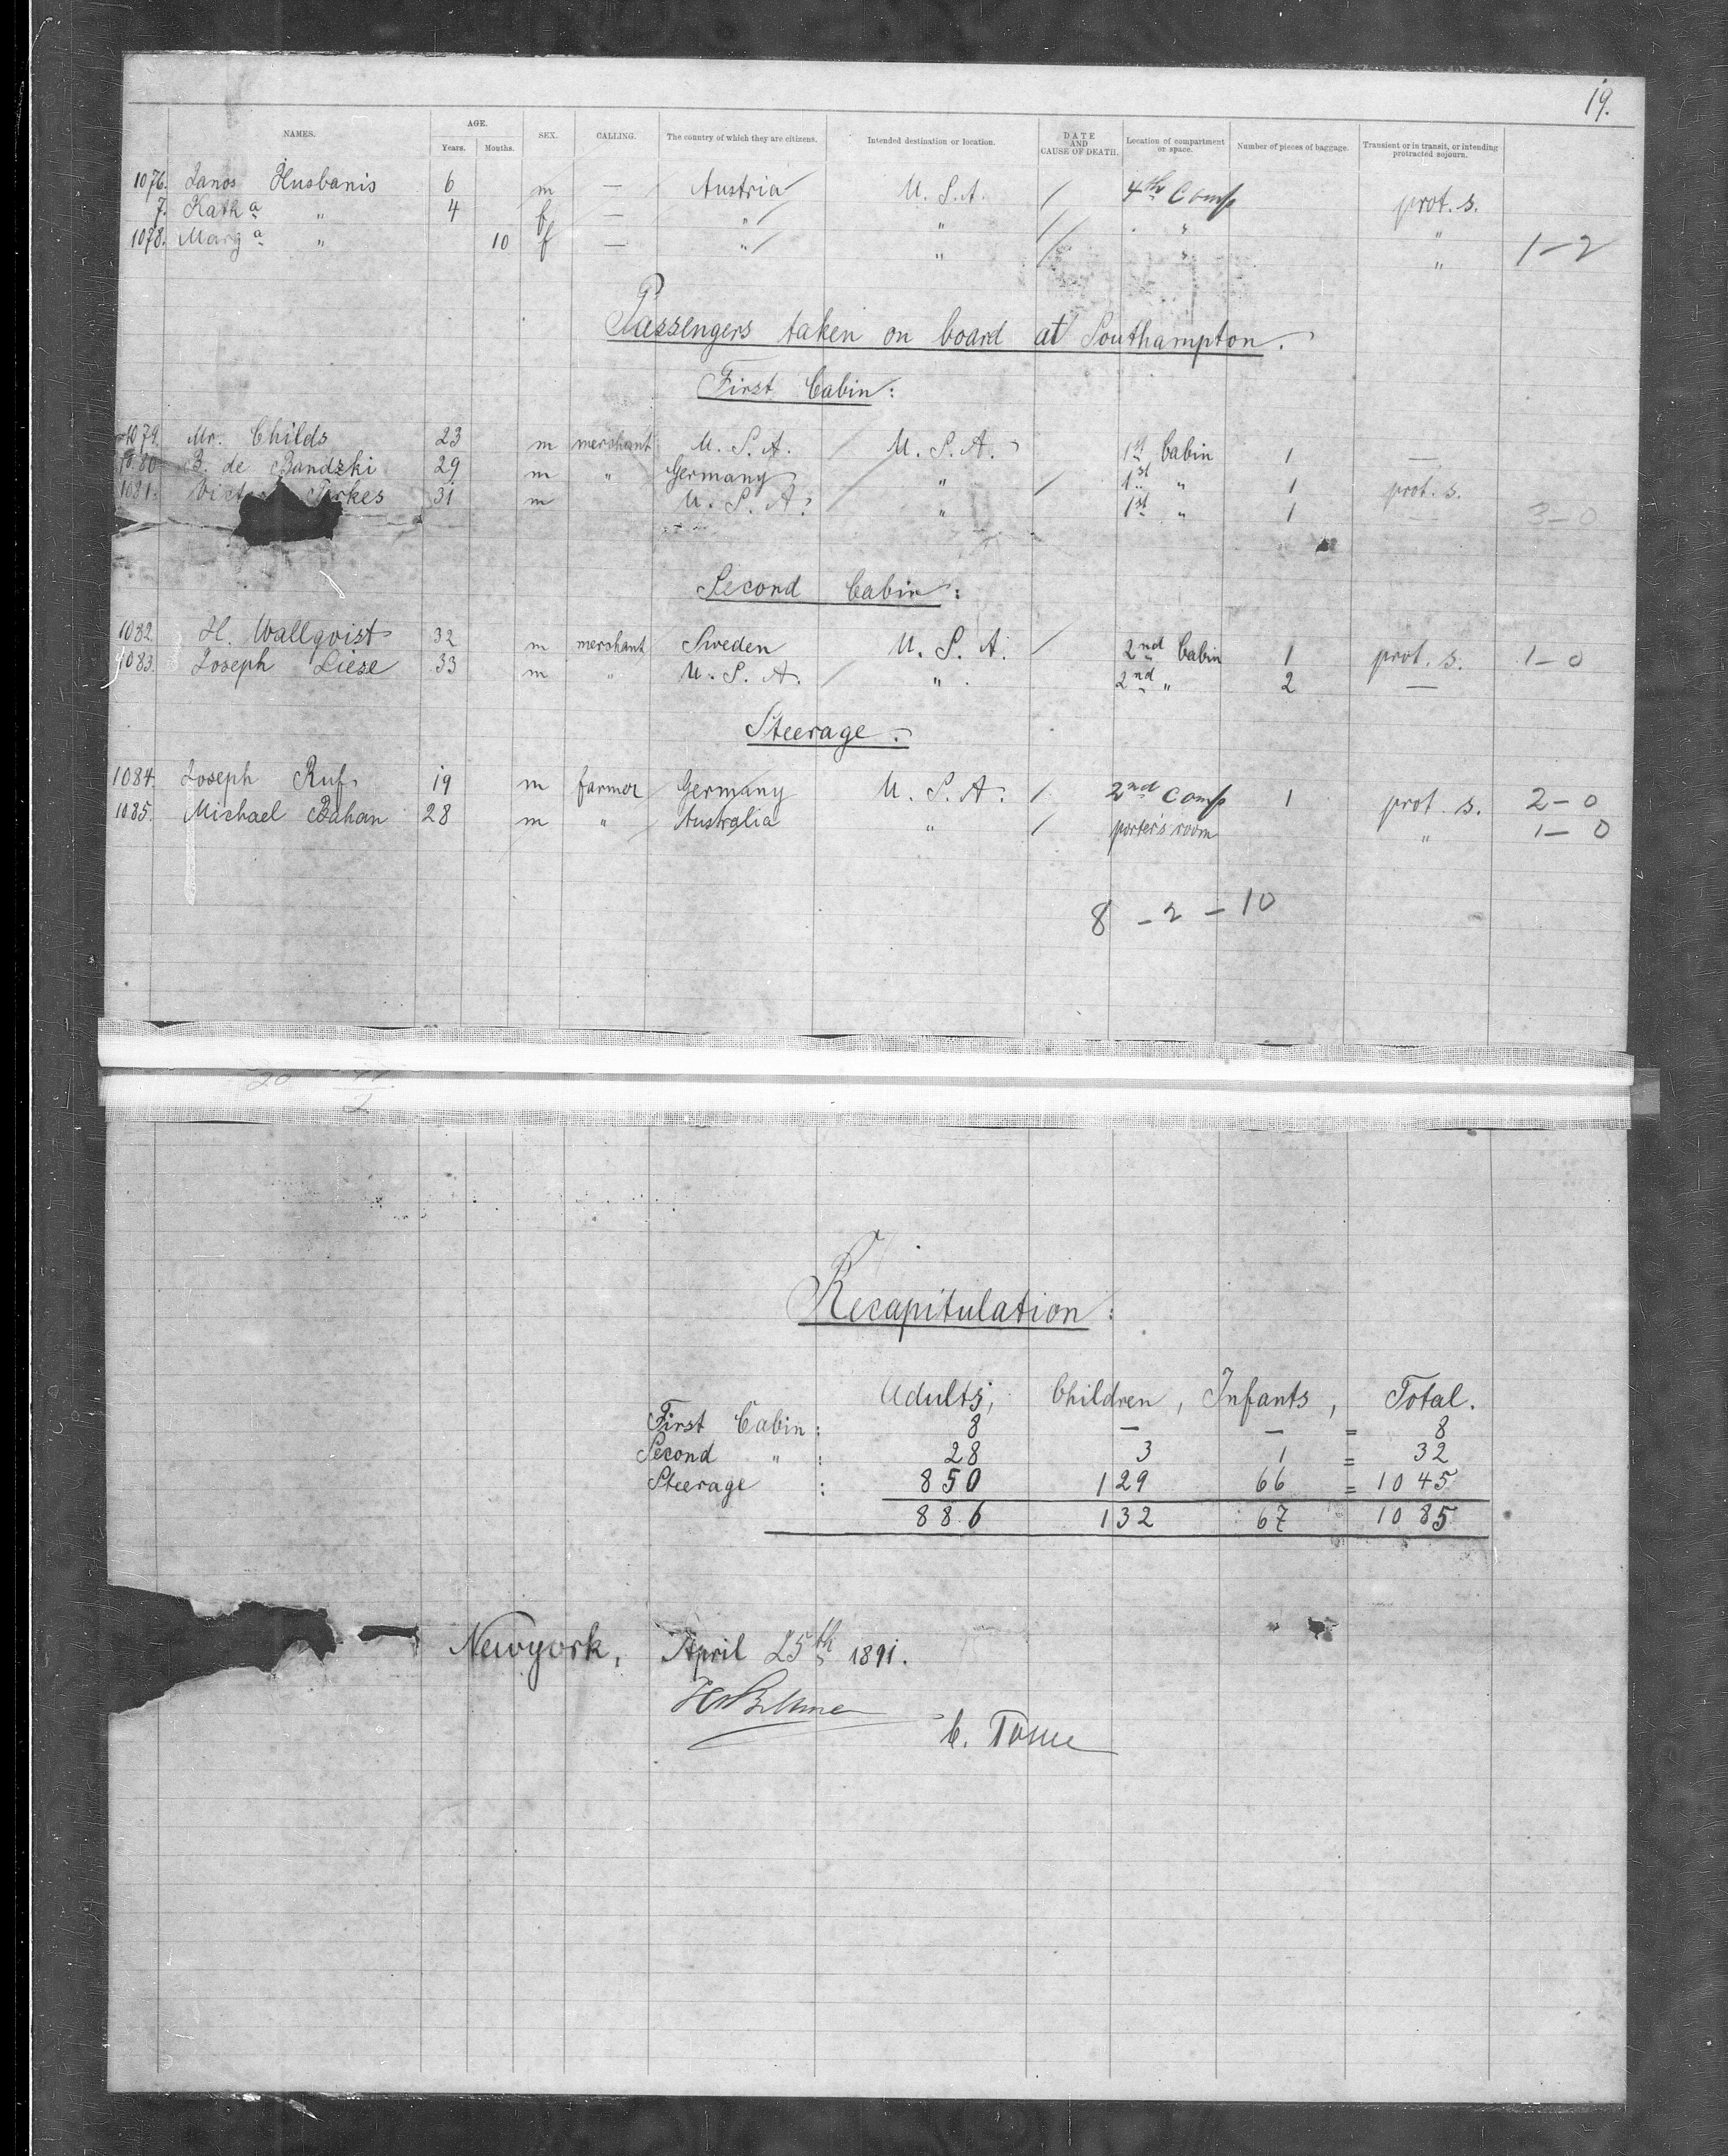 19.
NAMES. AGE. Years. Months. SEX. CALLING. The country of which they are citizens. Intended destination or location. DATE AND CAUSE OF DEATH. Location of compartment or space. Number of pieces of baggage. Transient or in transit, or intending protracted sojourn.
1076. Janos Husbanis 6 m — Austria U. S. A. / 4th Comp prot. s.
7. Katha " 4 f — " " / " "
1078. Marga " 10 f — " " / " " 1-2
Passengers taken on board at Southampton.
First Cabin:
1079. Mr. Childs 23 m merchant U. S. A. / U. S. A. 1st Cabin 1 —
1080. B. de Bandzki 29 m " Germany " / 1st " 1 prot. s.
1081. 31 m U. S. A. " 1st " 1 3-0
Second Cabin:
1082. H. Wallqvist 32 m merchant Sweden U. S. A. / 2nd Cabin 1 prot. s. 1-0
1083. Joseph Liese 33 m " U. S. A. / " 2nd " 2 —
Steerage:
1084. Joseph Ruf 19 m farmer Germany U. S. A. / 2nd Comp 1 prot. s. 2-0
1085. Michael Bahan 28 m " Australia " / porter's room " 1-0
8 - 2 - 10
20
2
Recapitulation:
Adults, Children, Infants, Total.
First Cabin: 8 — — = 8
Second " : 28 3 1 = 32
Steerage : 850 129 66 = 1045
886 132 67 1085
Newyork, April 25th 1891.